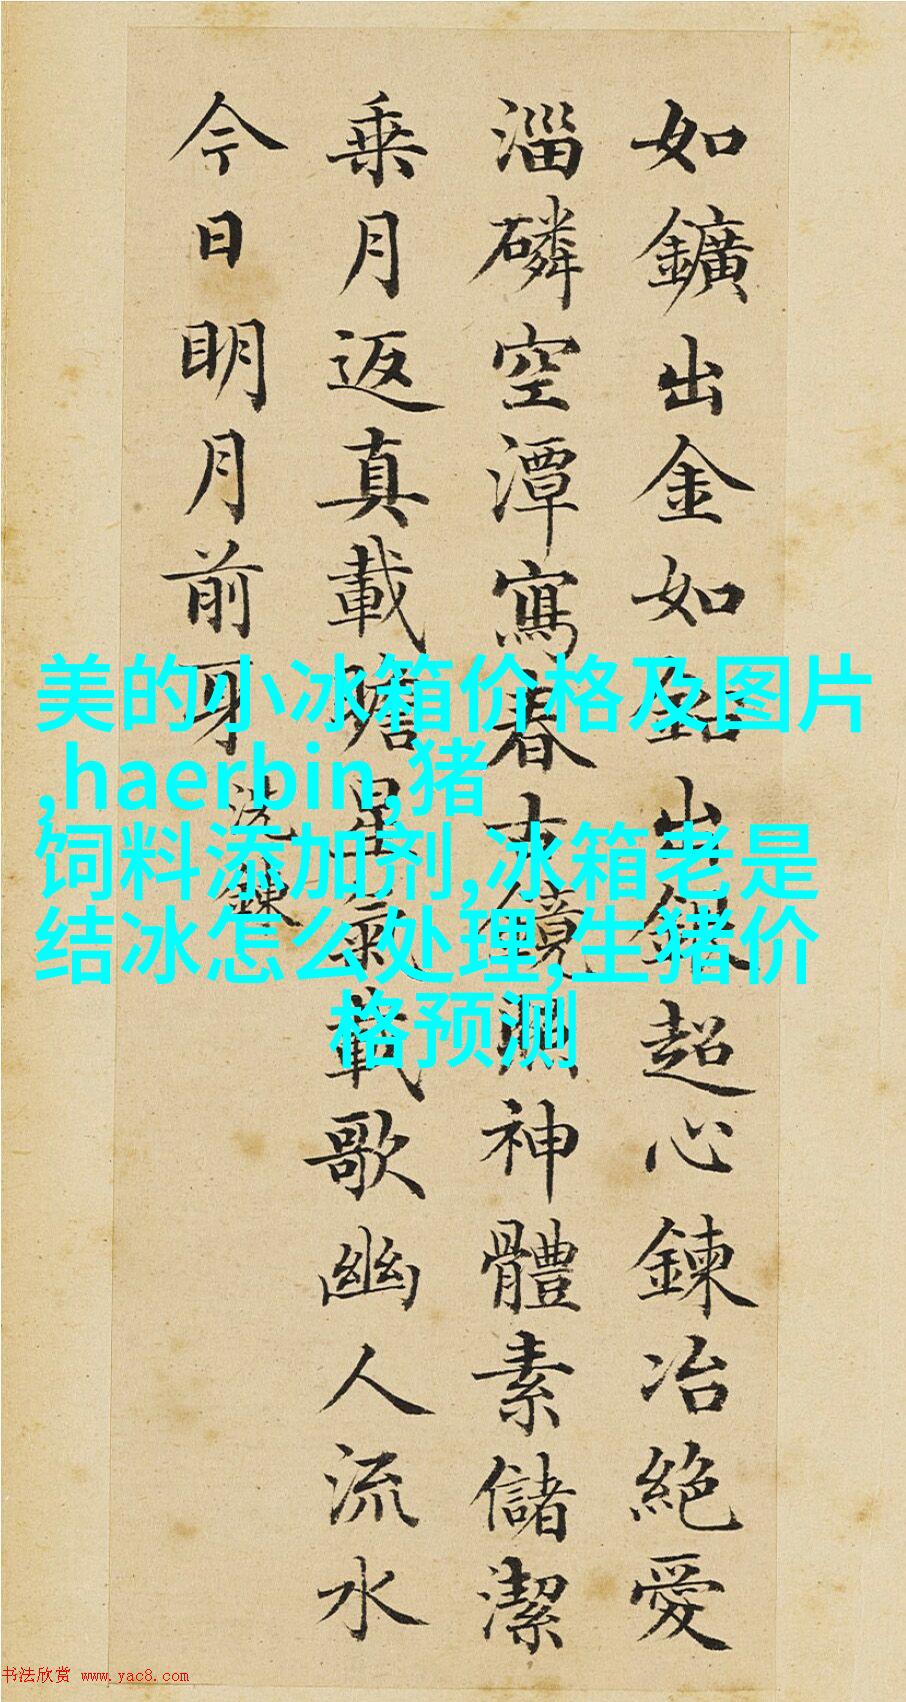 如鑛出金如鉛出銀超心鍊冶絕愛
淄磷空潭寫春古鏡照神體素儲潔
乗月返真載瞻星氣載歌幽人流水
今日明月前身
洗鍊
美的小冰箱价格及图片
,haerbin,猪
饲料添加剂,冰箱老是
结冰怎么处理,生猪价
格预测
书法欣赏 www.yac8.com